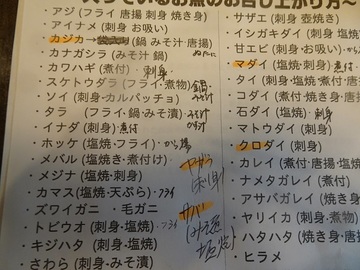 入っているお魚のお召し上がり方～
・アジ（フライ 唐揚 刺身 焼き身）
・アイナメ（刺身 お吸い）
・カジカ→（鍋 みそ汁 唐揚）
・カナガシラ（みそ汁 鍋）
・カワハギ（煮付）・刺身
・スケトウダラ（フライ・煮物）鍋・みそ汁
・ソイ（刺身・カルパッチョ）みそ汁
・タラ （フライ・鍋・みそ漬）
・イナダ（刺身）煮付
・ホッケ（塩焼・フライ）・から揚
・メバル（塩焼き・煮付け）
・メジナ（刺身・塩焼）
・カマス（塩焼・天ぷら）・フライ
・ズワイガニ ・ 毛ガニ
・トビウオ（刺身・塩焼）・フライ
・キジハタ（刺身・塩焼）
・さわら（刺身・みそ漬）
刺身
サバ
みそ煮
塩焼
・サザエ（刺身 壺焼き）
・イシガキダイ（刺身 塩
・甘エビ（刺身・お吸い）・から
・マダイ（刺身・塩焼）煮付
・タイ（刺身・塩焼・煮付
・コダイ（煮付・焼き身・唐
・石ダイ（塩焼）・刺身
・マトウダイ（刺身）
・クロダイ（刺身）
・カレイ（煮付・唐揚・塩焼
・ナメタガレイ（煮付）
・アサバガレイ（焼き
・ヤリイカ（刺身・煮物）
・ハタハタ（焼き・唐揚
・ヒラメ